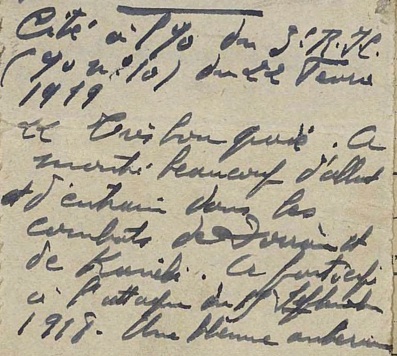 Cité à l'O du 3e R.I.C.
(O n° 10) du 22 Fevri
1919
Très bon gradé. A
montré beaucoup d'allant
et d'entrain dans les
combats de Doiran et
de Kanieki. A participé
à l'attaque du 1er Septembre
1918. Une blessure antérieure